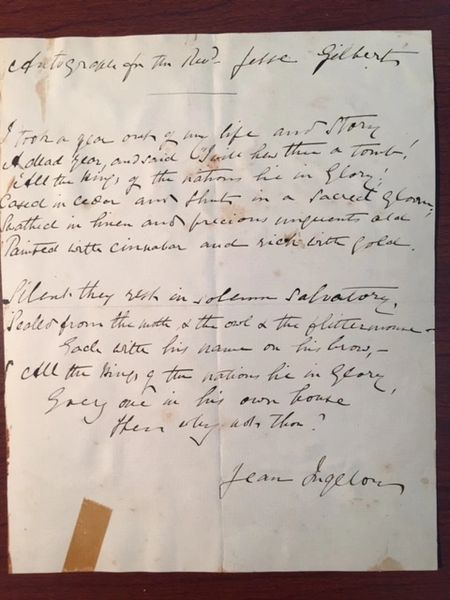 Autograph for the Revd. Jesse Gilbert
I took a year out of my life and story
A dead year, and said "I will hew thee a tomb!
'All the kings of the nations lie in Glory;'
Cased in cedar and shut in a sacred gloom;
Swathed in linen and precious unguents old
Painted with cinnabar and rich with gold.
Silent they rest in solemn salvatory,
Sealed from the moth & the owl & the flittermouse –
Each with his name on his brow, –
'All the kings of the nations lie in Glory,
Every one in his own house'
Then why not thou?
Jean Ingelow